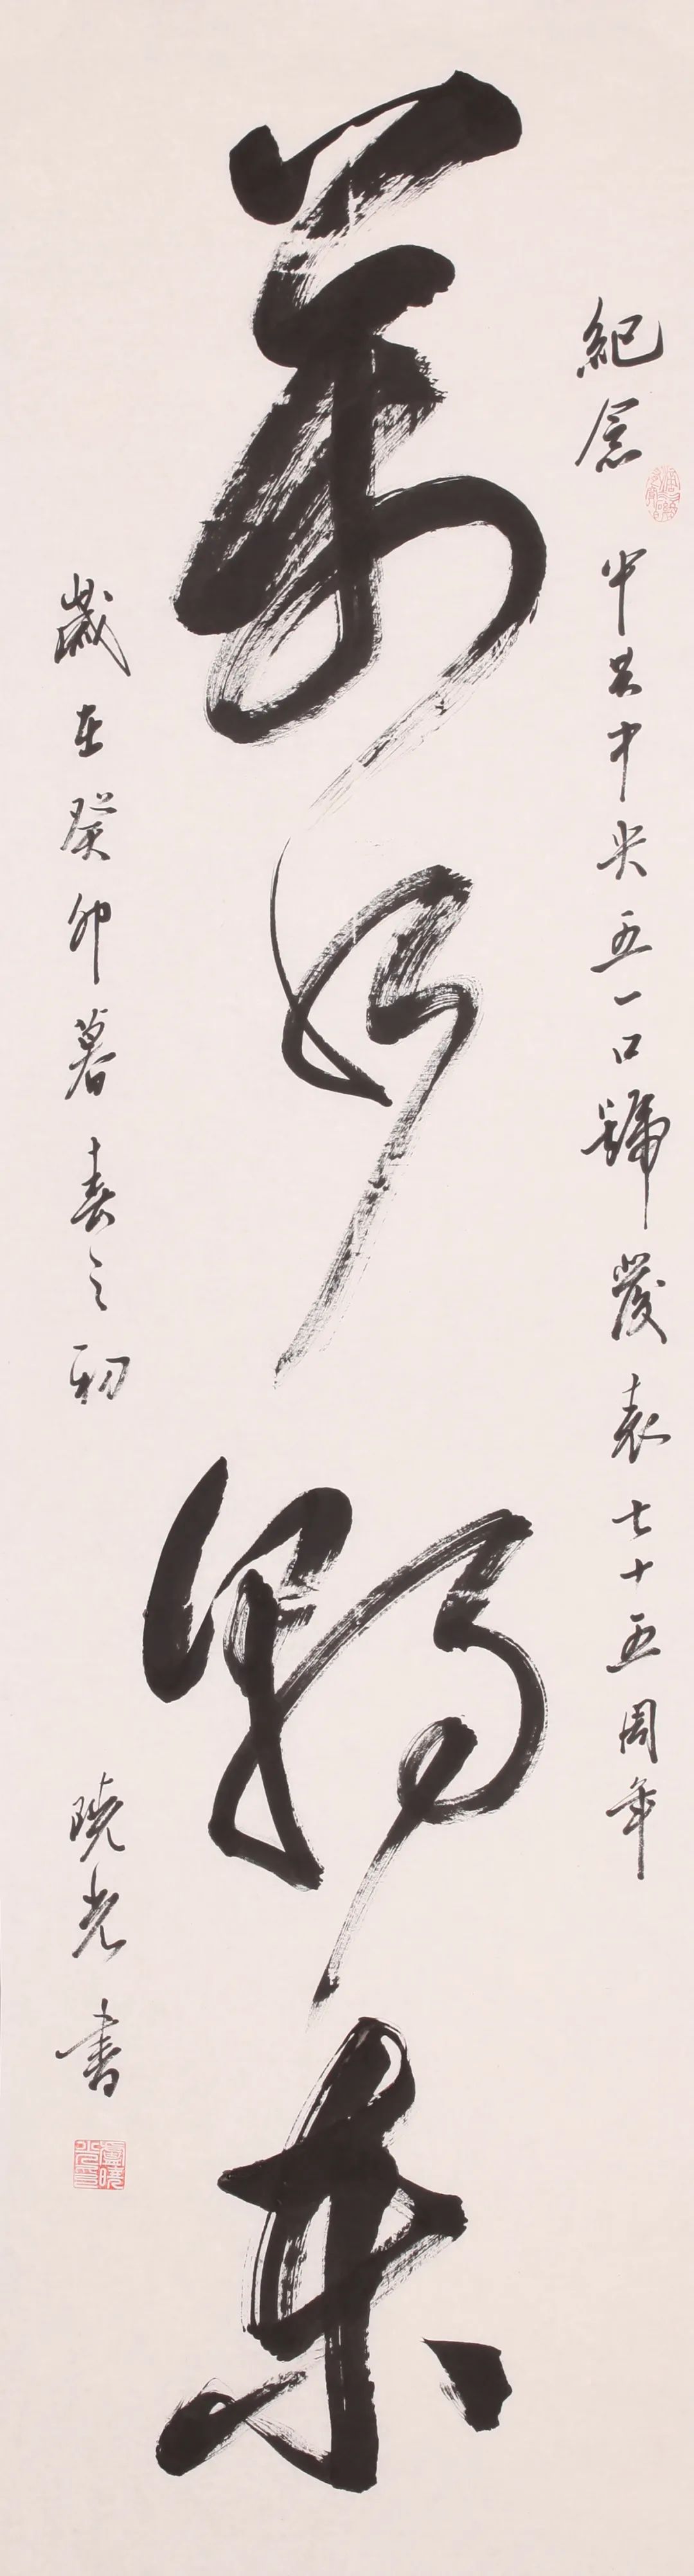 紀念 中共中央五一口號發表七十五周年
萬河朝東
歲在癸卯暮春之初 曉光書